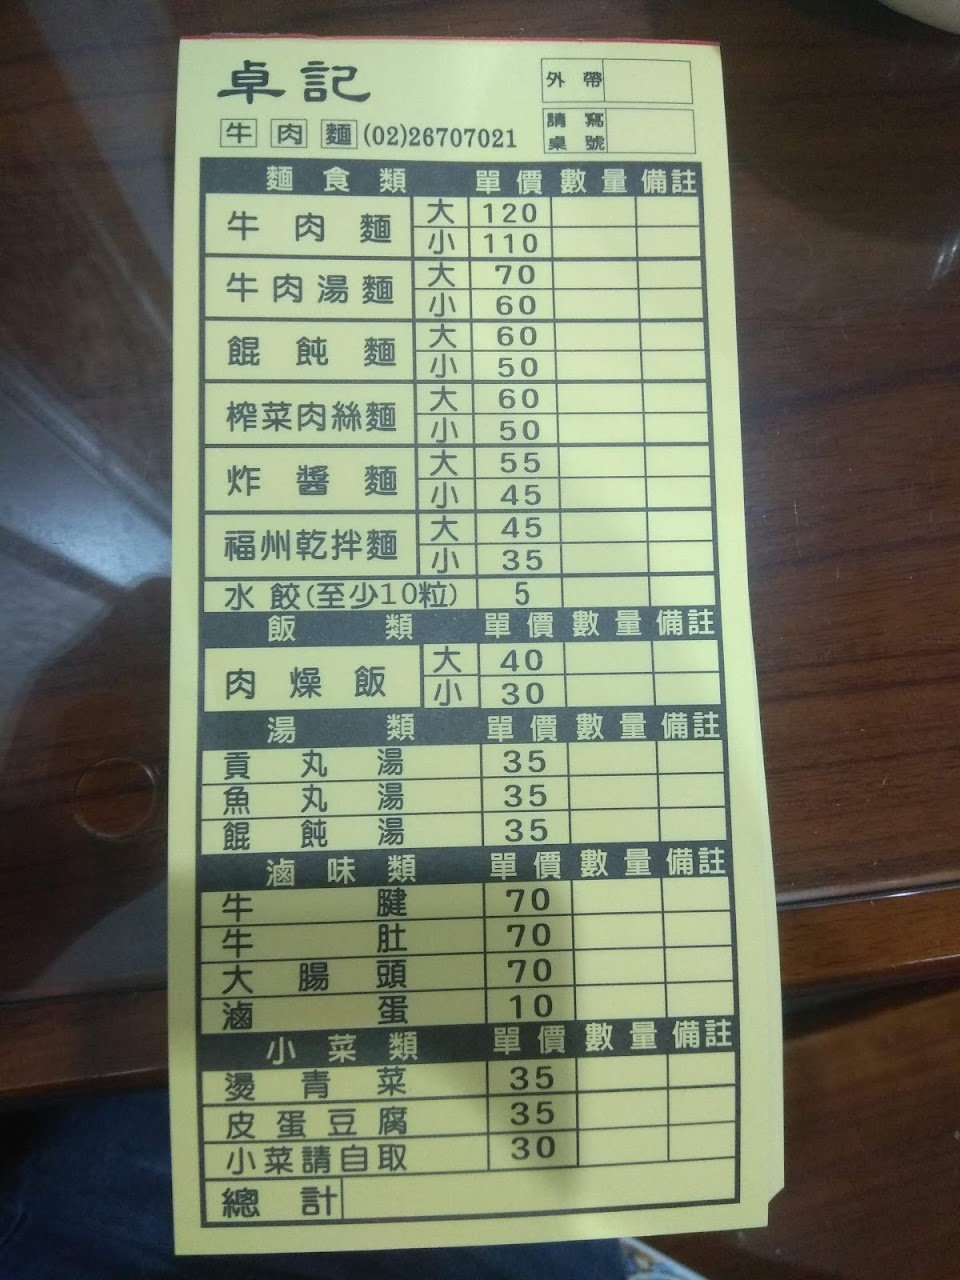 卓記
外帶
牛肉麵(02)26707021
請寫桌號
麵食類 單價 數量 備註
牛肉麵 大 120
小 110
牛肉湯麵 大 70
小 60
餛飩麵 大 60
小 50
榨菜肉絲麵 大 60
小 50
炸醬麵 大 55
小 45
福州乾拌麵 大 45
小 35
水餃(至少10粒) 5
飯類 單價 數量 備註
肉燥飯 大 40
小 30
湯類 單價 數量 備註
貢丸湯 35
魚丸湯 35
餛飩湯 35
滷味類 單價 數量 備註
牛腱 70
牛肚 70
大腸頭 70
滷蛋 10
小菜類 單價 數量 備註
燙青菜 35
皮蛋豆腐 35
小菜請自取 30
總計